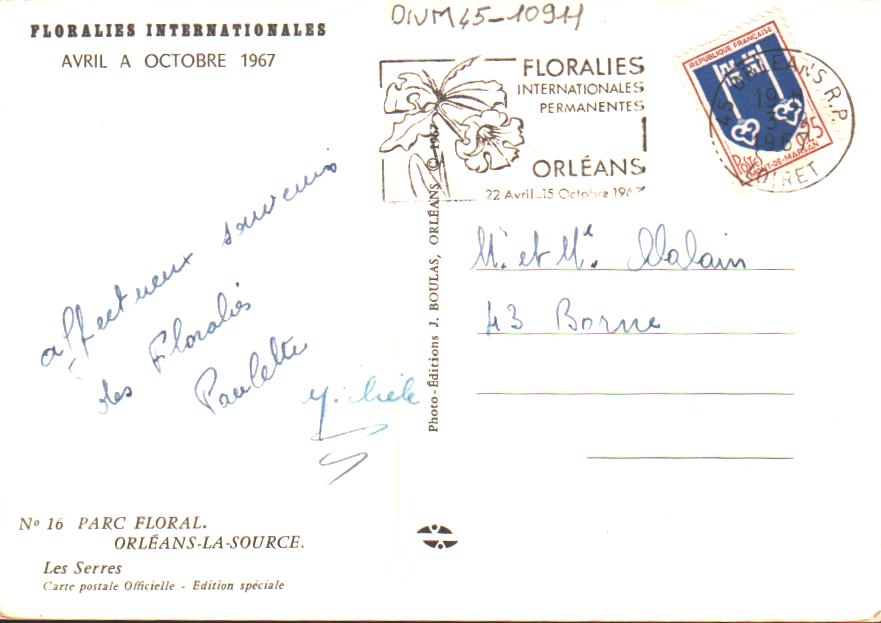 DIVM45-10911
FLORALIES INTERNATIONALES
AVRIL A OCTOBRE 1967
FLORALIES
INTERNATIONALES
PERMANENTES
ORLÉANS
22 Avril_15 Octobre 1967
REPUBLIQUE FRANÇAISE
POSTES
0,25
MONT-DE-MARSAN
45 ORLEANS R.P.
19 H
1969
LOIRET
affectueux souvenirs
des Floralies
Paulette
Michèle
Photo-Éditions J. BOULAS, ORLÉANS © 1967
Mr. et Me. Malain
43 Borne
Nº 16 PARC FLORAL.
ORLÉANS-LA-SOURCE.
Les Serres
Carte postale Officielle - Edition spéciale